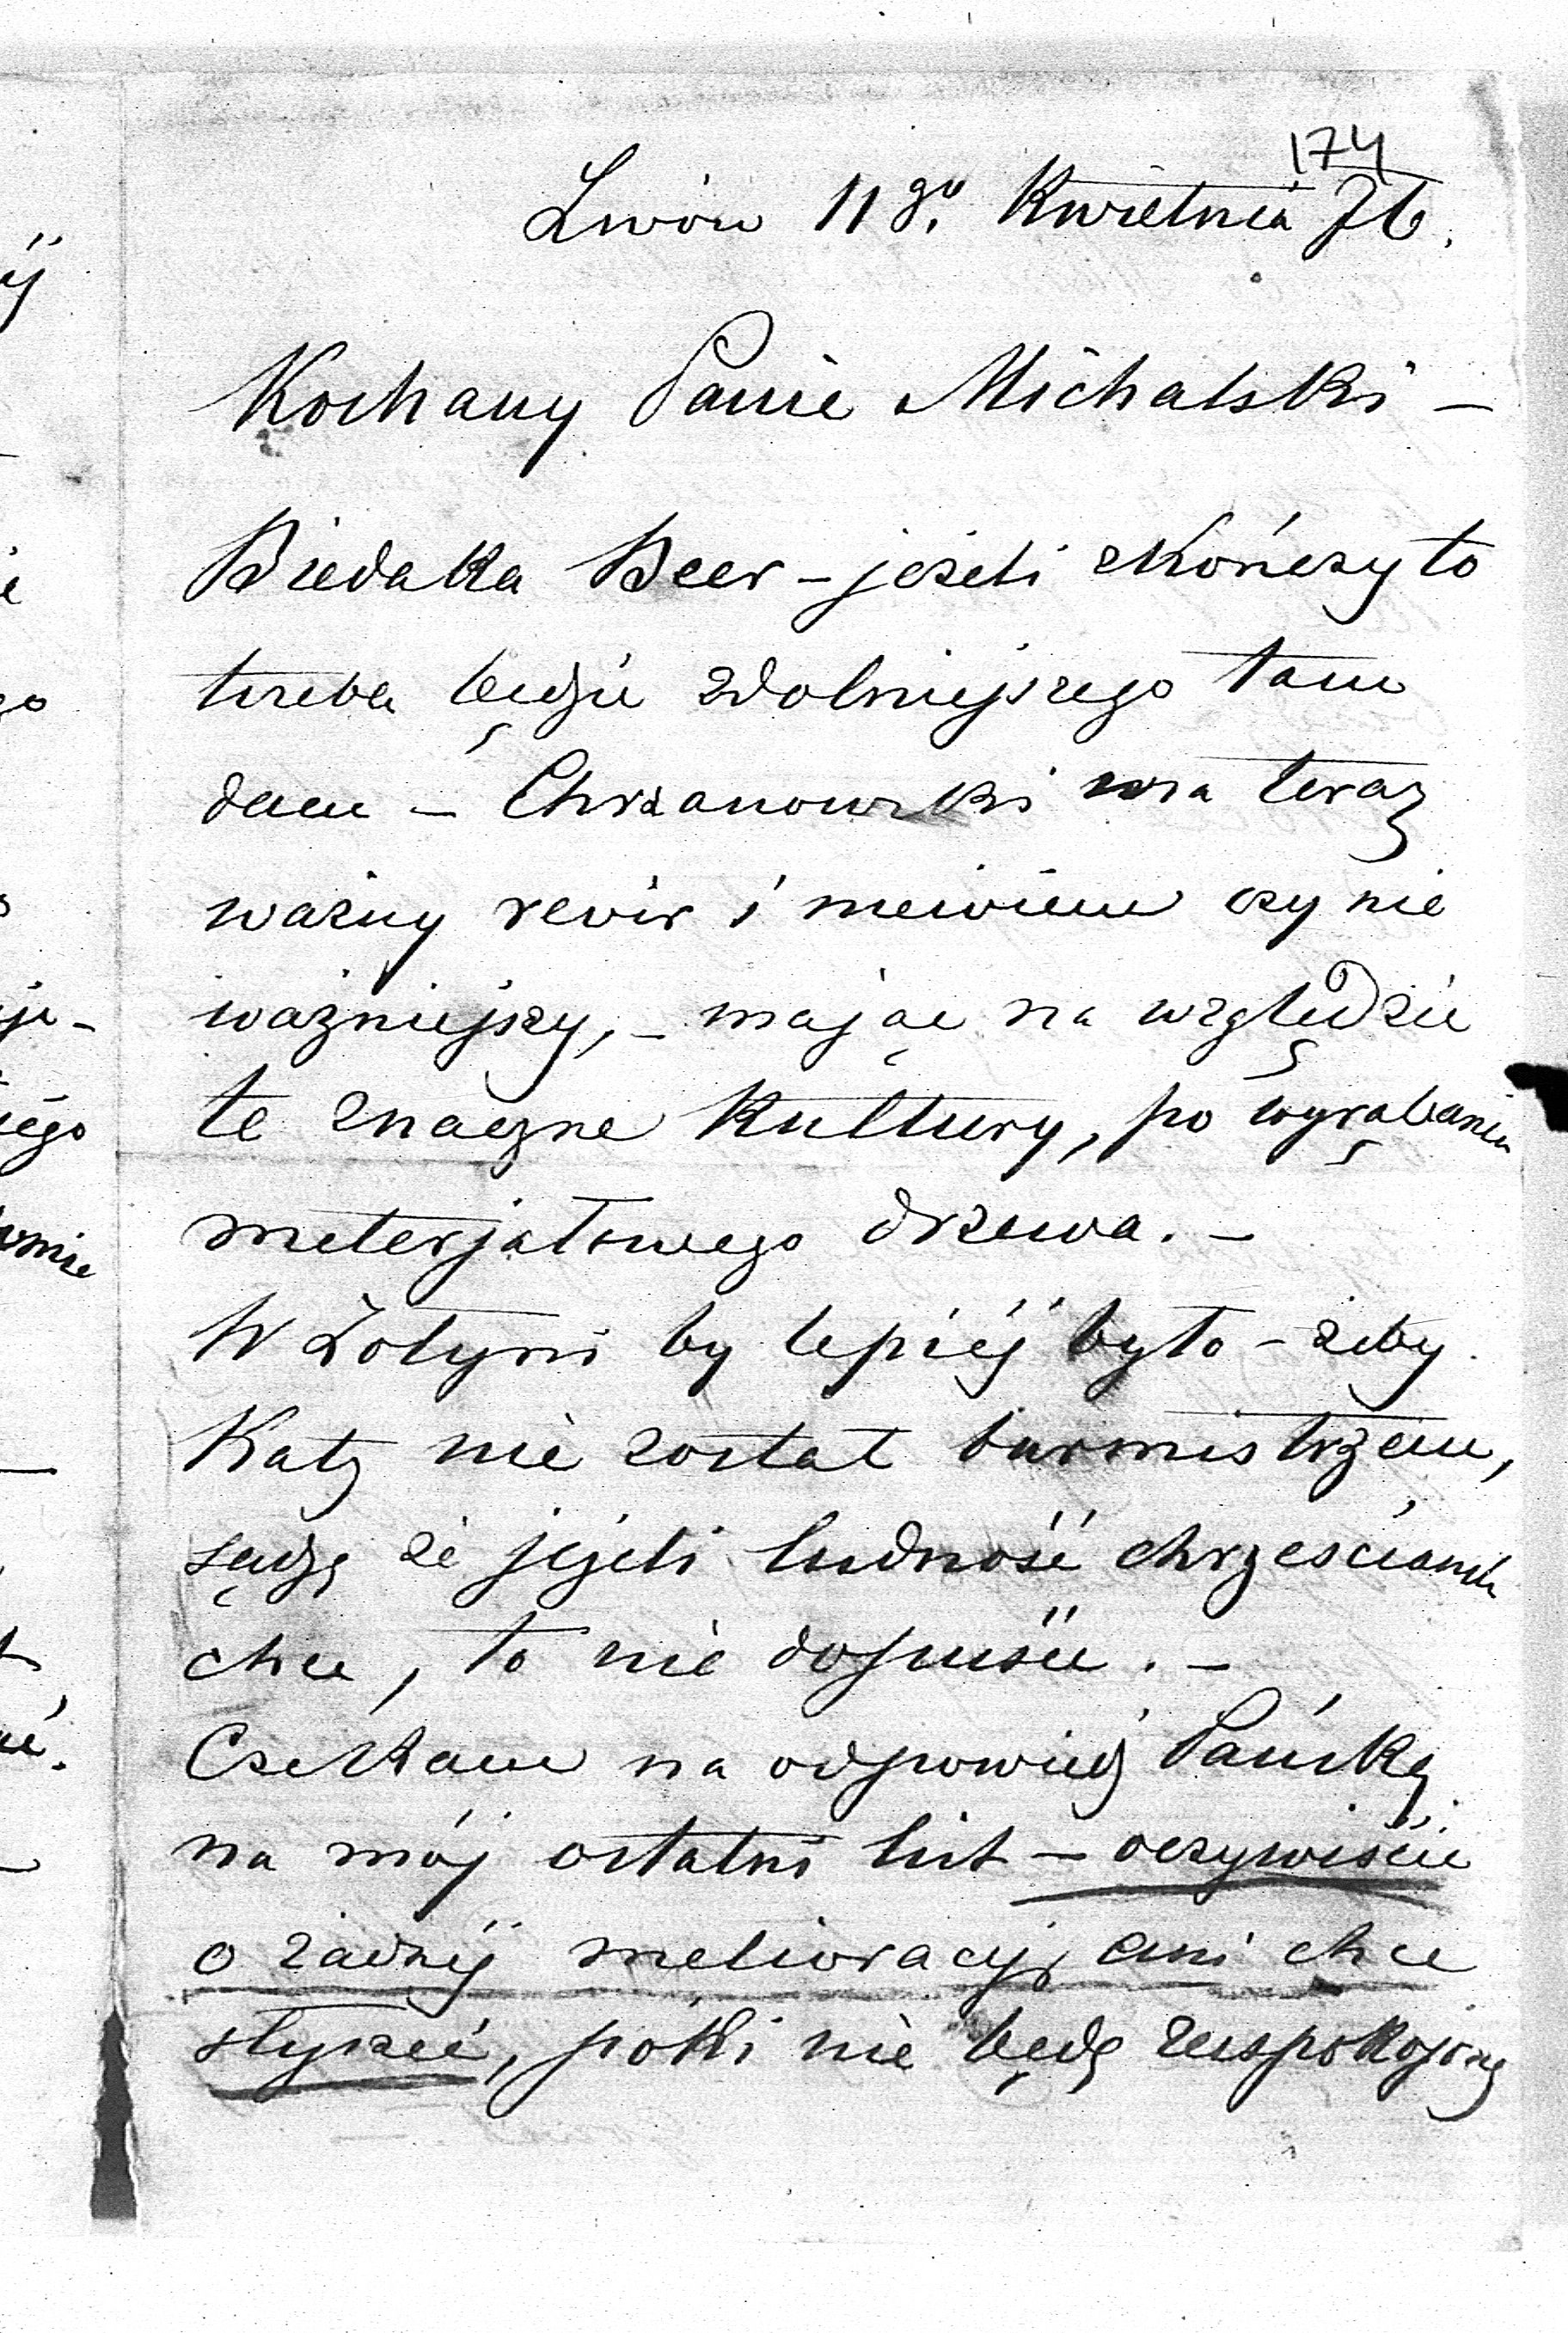 174
Lwów 11go. Kwietnia 76.
Kochany Panie Michalski –
Biedaka Beer – jeżeli skończy to
trzeba będzie zdolniejszego tam
dać – Chrzanowski ma teraz
ważny revir i niewiem czy nie
ważniejszy, – mając na względzie
te znaczne kultury, po wyrąbaniu
materjałowego drzewa. –
W Żołyni by lepiéj było – żeby
Katz nie został burmistrzem,
sądzę że jeżeli ludność chrześciańska
chce, to nie dopuści. –
Czekam na odpowiedź Pańską
na mój ostatni list – oczywiście
o żadnéj melioracyi, ani chcę
słyszeć, póki nie będę zaspokojony